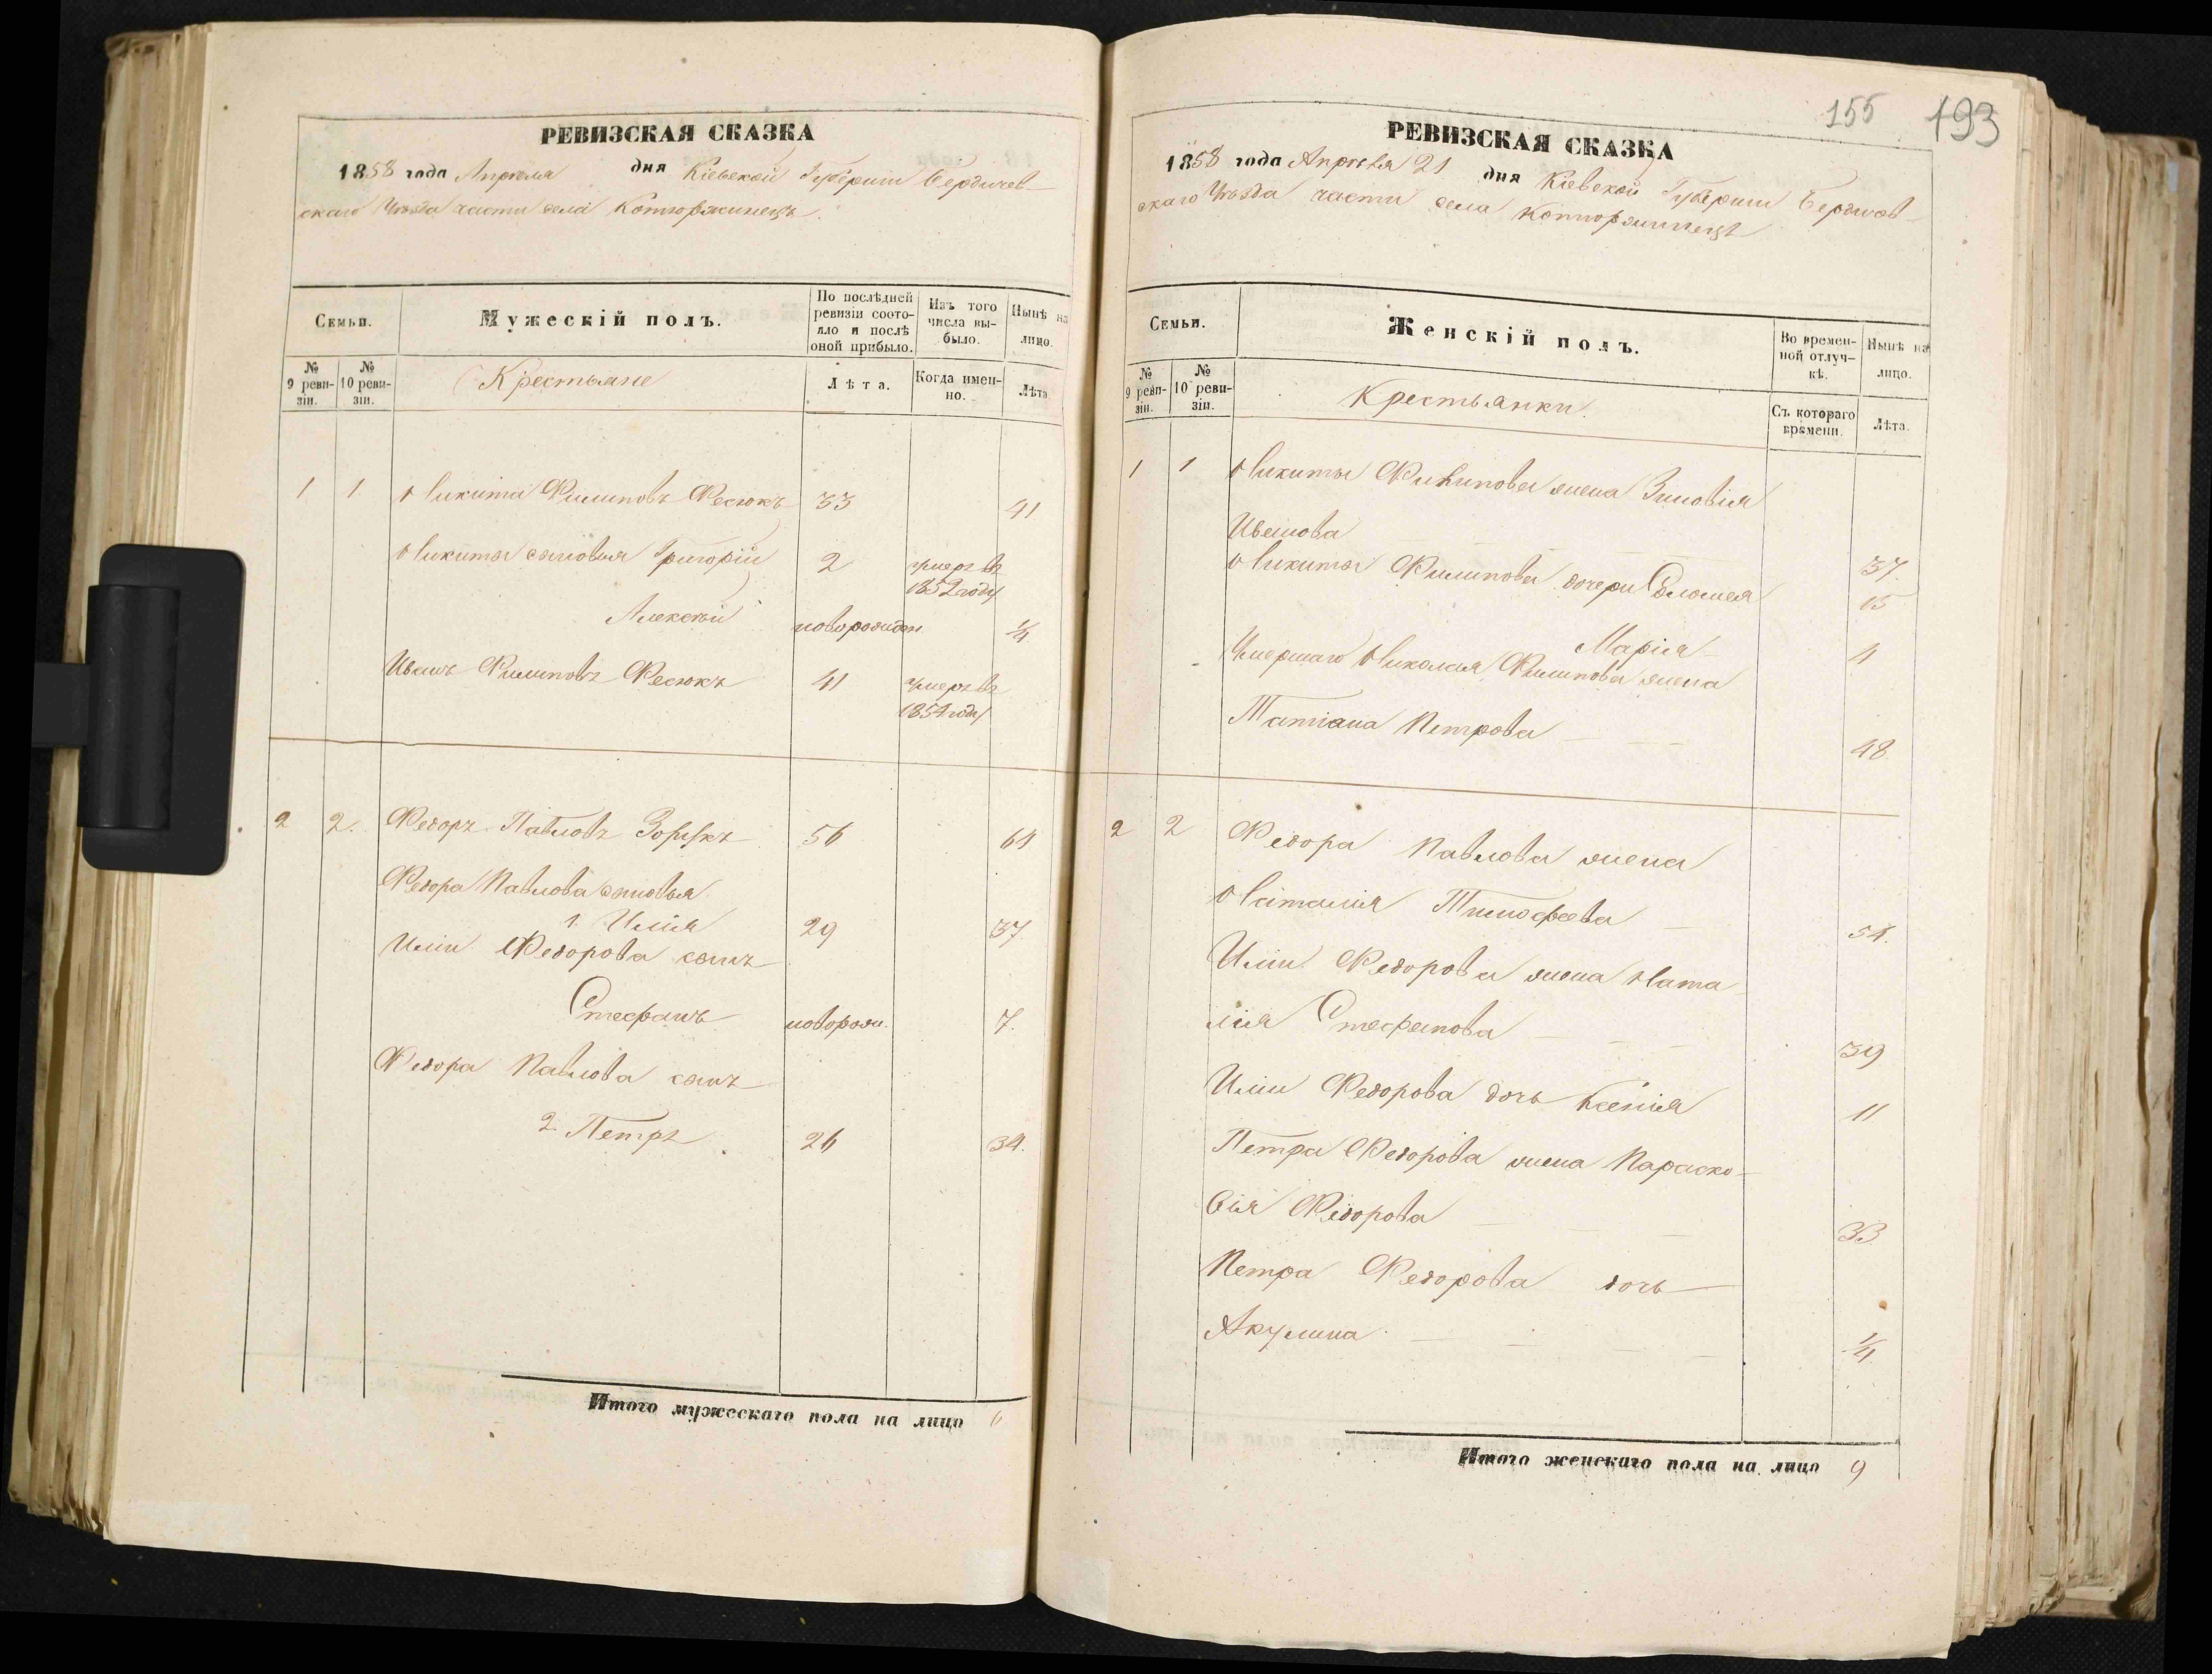 РЕВИЗСКАЯ СКАЗКА
1858 года Апрѣля дня Кіевской Губерніи Бердичев-
скаго Уѣзда части села Котюржинецъ.
Семьи.
Мужескій полъ.
По послѣдней ревизіи состояло и послѣ оной прибыло.
Изъ того числа выбыло.
Нынѣ на лицо.
№ 9 ревизіи.
№ 10 ревизіи.
Крестьяне
Лѣта.
Когда именно.
Лѣта
1 1 Никита Филиповъ Фесюкъ 33 41
Никиты сыновья Григорій 2 умеръ въ
1852 году
Алексѣй новорожден ¼
Иванъ Филиповъ Фесюкъ 41 умеръ въ
1854 году
2 2. Федоръ Павловъ 56 64
Федора Павлова сыновья
1. Илія 29 37
Иліи Федорова сынъ
Стефанъ новорож. 7.
Федора Павлова сынъ
2. Петръ 26 34.
Итого мужескаго пола на лицо 6
155 193
РЕВИЗСКАЯ СКАЗКА
1858 года Апрѣля 21 дня Кіевской Губерніи Бердичев-
скаго Уѣзда части села Котюржинецъ
Семьи.
Женскій полъ.
Во временной отлучкѣ.
Нынѣ на лицо.
№ 9 ревизіи.
№ 10 ревизіи.
Крестьянки.
Съ котораго времени.
Лѣта.
1 1 Никиты Филипова жена Зиновія
Иванова 37.
Никиты Филипова дочери Соломея 15
Марія 4
Умершаго Николая Филипова жена
Татіана Петрова 48
2 2 Федора Павлова жена
Наталія Тимофеева 54.
Иліи Федорова жена Ната-
лія Стефанова 39
Иліи Федорова дочь Ксенія 11
Петра Федорова жена Параско-
вія Федорова 33
Петра Федорова дочь
Акулина ¼
Итого женскаго пола на лицо 9